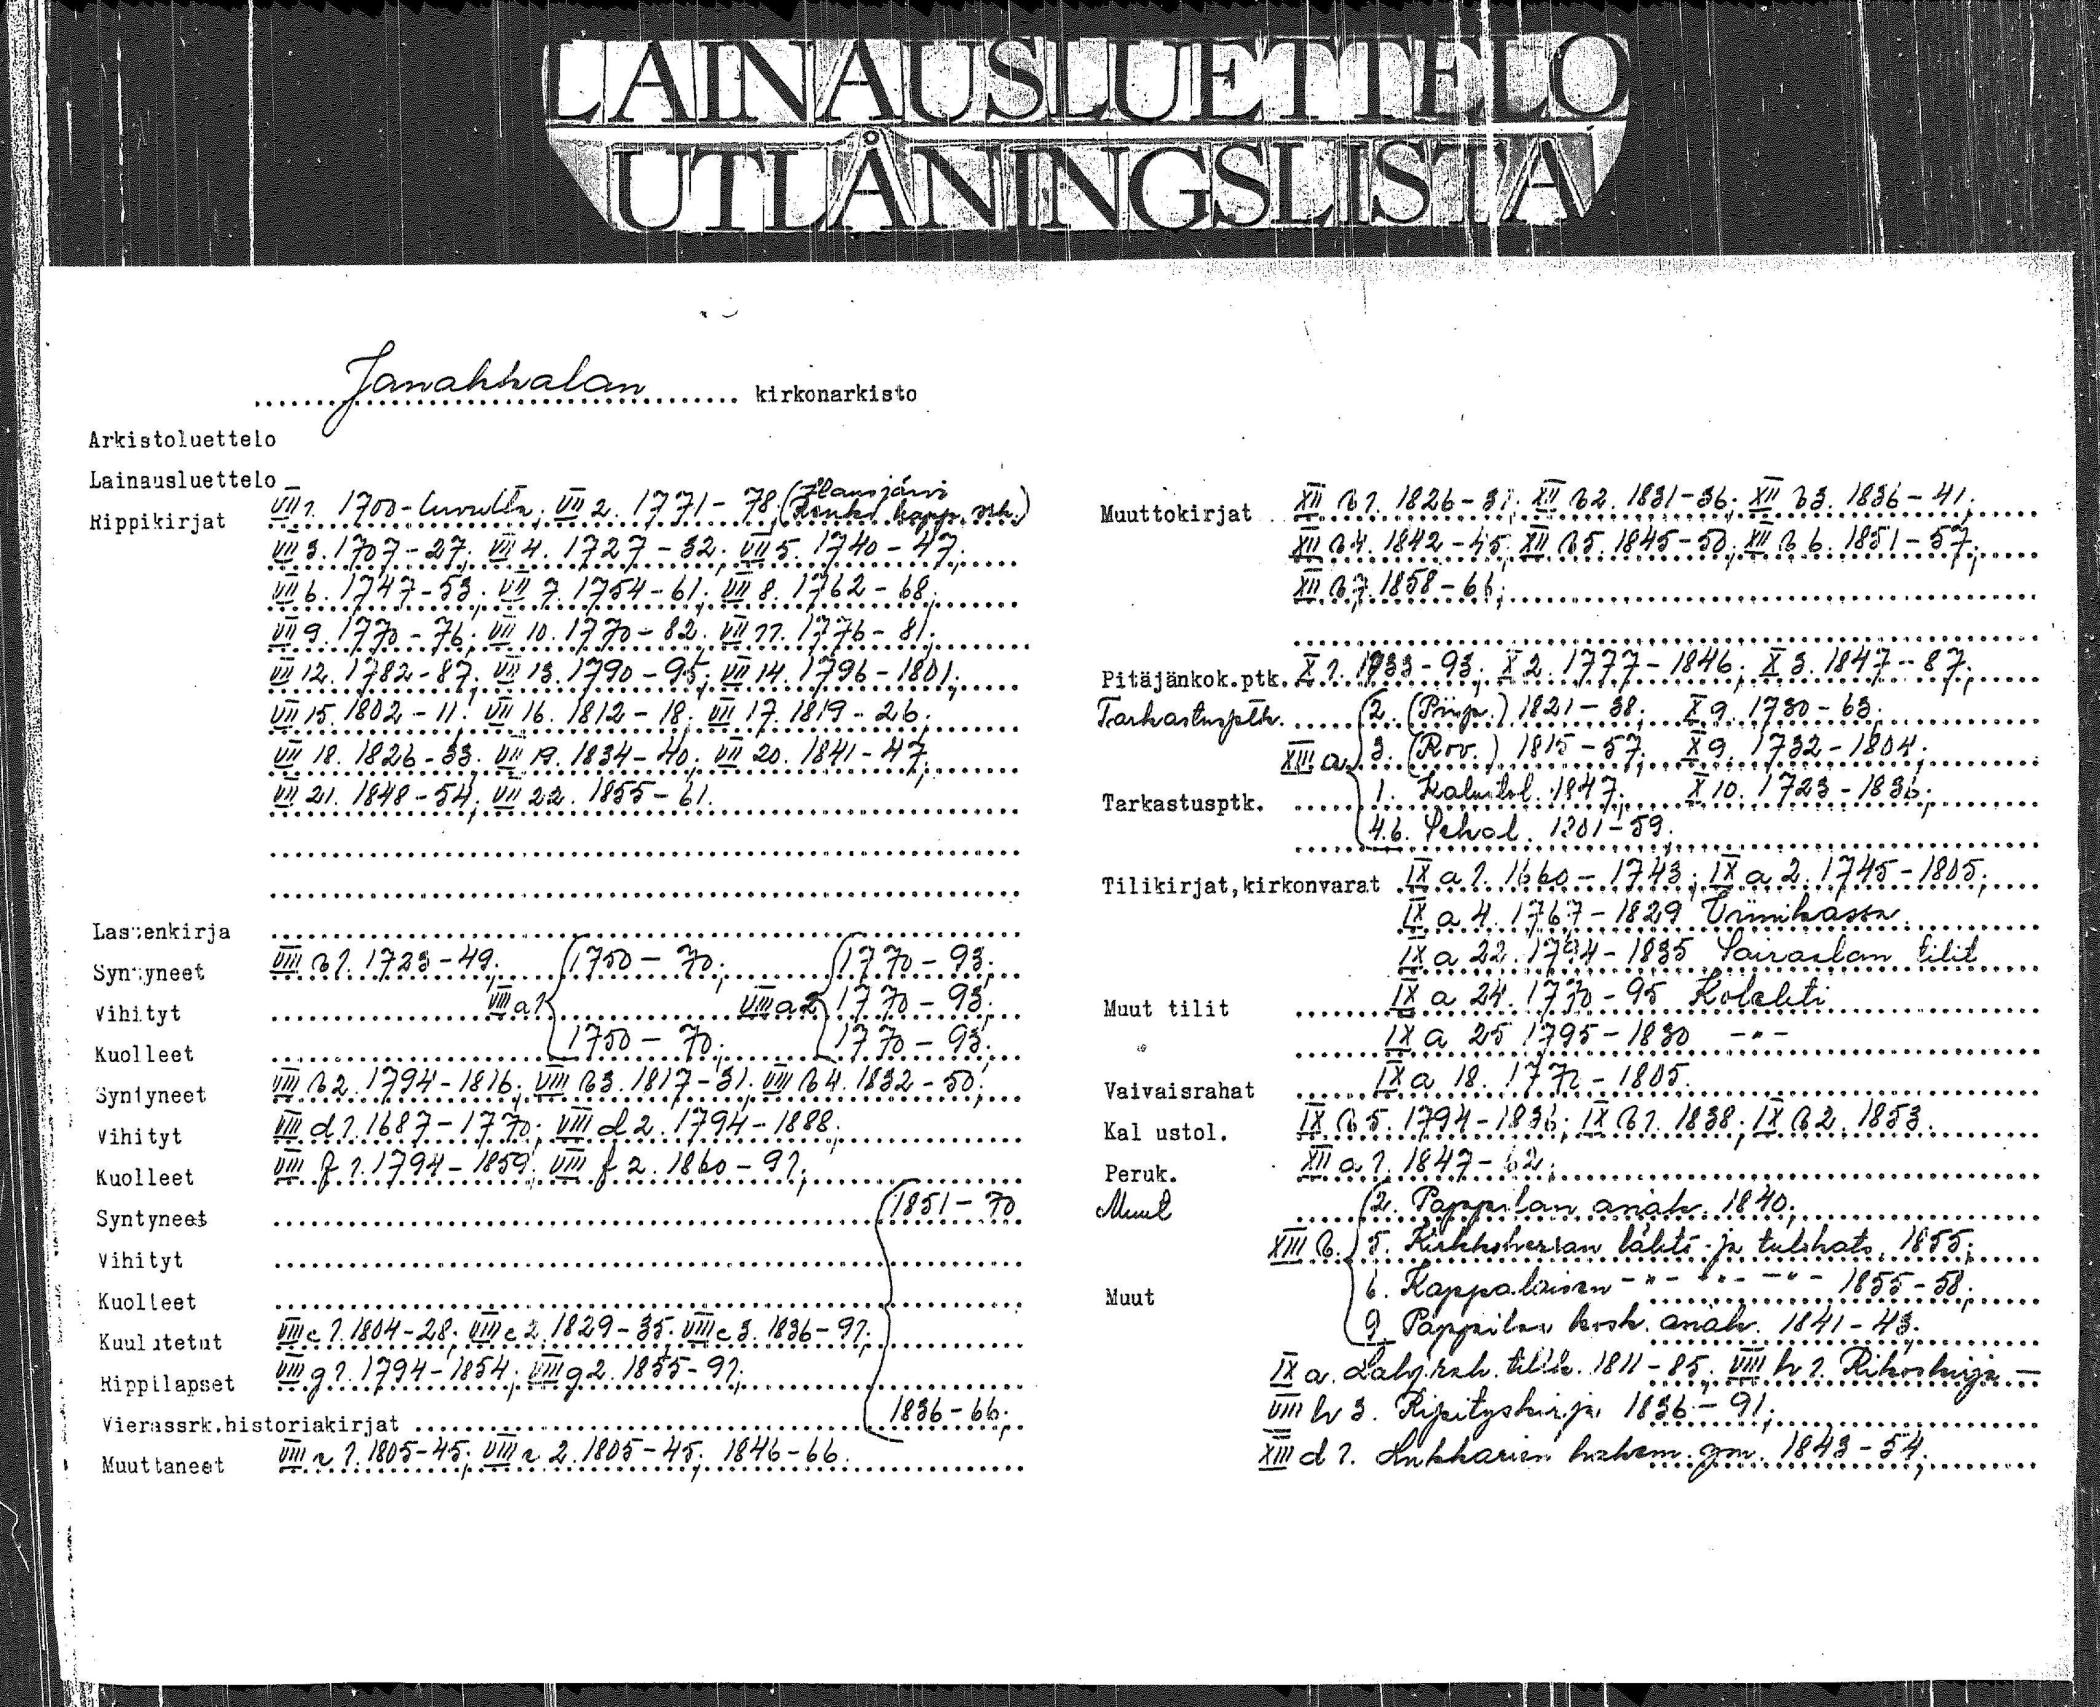 LAINAUSLUETTELO
UTLÅNINGSLISTA
Janakkalan kirkonarkisto
Arkistoluettelo
Lainausluettelo
Rippikirjat VII 1. 1700-luvulta; VII 2. 1771-78 (Hausjärvi
Renko kapp. srk.)
VII 3. 1707-27; VII 4. 1727-32; VII 5. 1740-47;
VII 6. 1747-53; VII 7. 1754-61; VII 8. 1762-68;
VII 9. 1770-76; VII 10. 1770-82; VII 11. 1776-81;
VII 12. 1782-87; VII 13. 1790-95; VII 14. 1796-1801;
VII 15. 1802-11; VII 16. 1812-18; VII 17. 1819-26;
VII 18. 1826-33; VII 19. 1834-40; VII 20. 1841-47;
VII 21. 1848-54; VII 22. 1855-61.
Lastenkirja
Syntyneet VIII b 1. 1723-49; 1750-70; 1770-93;
Vihityt VIII a 1 VIII a 2 1770-93;
Kuolleet 1750-70; 1770-93;
Syntyneet VIII b 2. 1794-1816; VIII b 3. 1817-31; VIII b 4. 1832-50;
Vihityt VIII d 1. 1687-1770; VIII d 2. 1794-1888;
Kuolleet VIII f 1. 1794-1859; VIII f 2. 1860-91;
Syntyneet 1851-70
Vihityt
Kuolleet
Kuulutetut VIII e 1. 1804-28; VIII e 2. 1829-35; VIII e 3. 1836-91;
Rippilapset VIII g 1. 1794-1854; VIII g 2. 1855-91;
Vierassrk.historiakirjat 1836-66;
Muuttaneet 1. 1805-45; 2. 1805-45; 1846-66.
Muuttokirjat XII b 1. 1826-31; XII b 2. 1831-36; XII b 3. 1836-41;
XII b 4. 1842-45; XII b 5. 1845-50; XII b 6. 1851-57;
XII b 7. 1858-66;
Pitäjänkok.ptk. X 1. 1733-93; X 2. 1777-1846; X 3. 1847-87;
Tarkastusptk. 2. (Piisp.) 1821-38; X 9. 1730-63;
XIII a. 3. (Rov.) 1815-57; X 9. 1732-1804;
Tarkastusptk. 1. Kalustol. 1847; X 10. 1723-1836;
4.6. 1801-59.
Tilikirjat,kirkonvarat IX a 1. 1660-1743; IX a 2. 1745-1805;
IX a 4. 1767-1829
IX a 22. 1794-1835 Sairaalan tilit
Muut tilit IX a 24. 1770-95 Kolehti
IX a 25 1795-1830 -"-
Vaivaisrahat IX a 18. 1772-1805.
Kal ustol. IX b 5. 1794-1836; IX b 1. 1838; IX b 2. 1853.
Peruk. XII a 1. 1847-62;
Muut 2. Pappilan asiak. 1840;
XIII b. 5. Kirkkoherran lähti- ja tulokats. 1855;
Muut 6. Kappalaisen -"- -"- -"- 1855-58;
9. Pappilan kosk. asiak. 1841-43.
IX a. 1811-85; VIII h 1. Rikoskirja -
VIII h 3. Ripityskirja 1836-91;
XIII d 1. Lukkarien 1843-54;